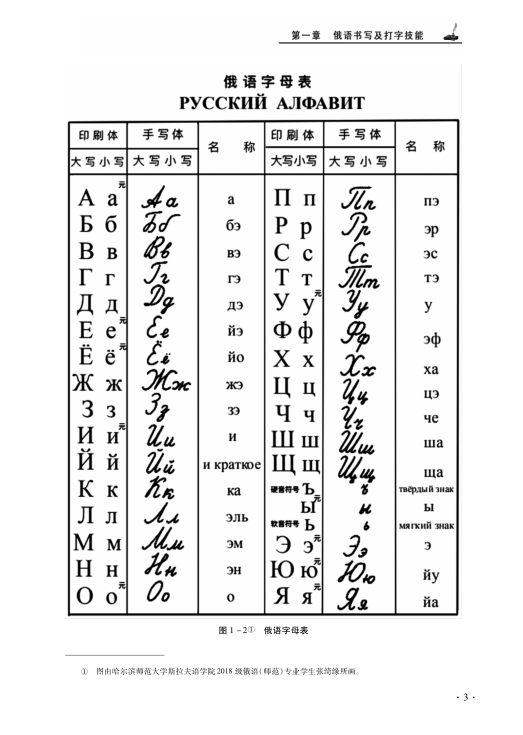 第一章 俄语书写及打字技能
俄语字母表
РУССКИЙ АЛФАВИТ
印刷体 手写体 名 称 印刷体 手写体 名 称
大写小写 大写小写 大写小写 大写小写
А а元 Аа а П п Пп пэ
Б б Бб бэ Р р Рр эр
В в Вв вэ С с Сс эс
Г г Гг гэ Т т Тт тэ
Д д Дд дэ У у元 Уу у
Е е元 Ее йэ Ф ф Фф эф
Ё ё元 Ёё йо Х х Хх ха
Ж ж Жж жэ Ц ц Цц цэ
З з Зз зэ Ч ч Чч че
И и元 Ии и Ш ш Шш ша
Й й Йй и краткое Щ щ Щщ ща
К к Кк ка 硬音符号 Ъ ъ твёрдый знак
Л л Лл эль Ы元 ы ы
М м Мм эм 软音符号 Ь ь мягкий знак
Н н Нн эн Э э元 Ээ э
О о元 Оо о Ю ю元 Юю йу
Я я元 Яя йа
图 1-2① 俄语字母表
① 图由哈尔滨师范大学斯拉夫语学院 2018 级俄语(师范)专业学生张绮缘所画。
·3·